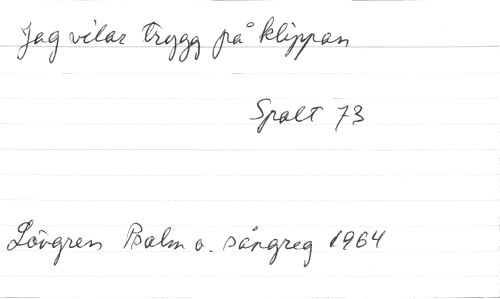 Jag vilar trygg på klippan
Spalt 73
Lövgren Psalm o. sångreg 1964